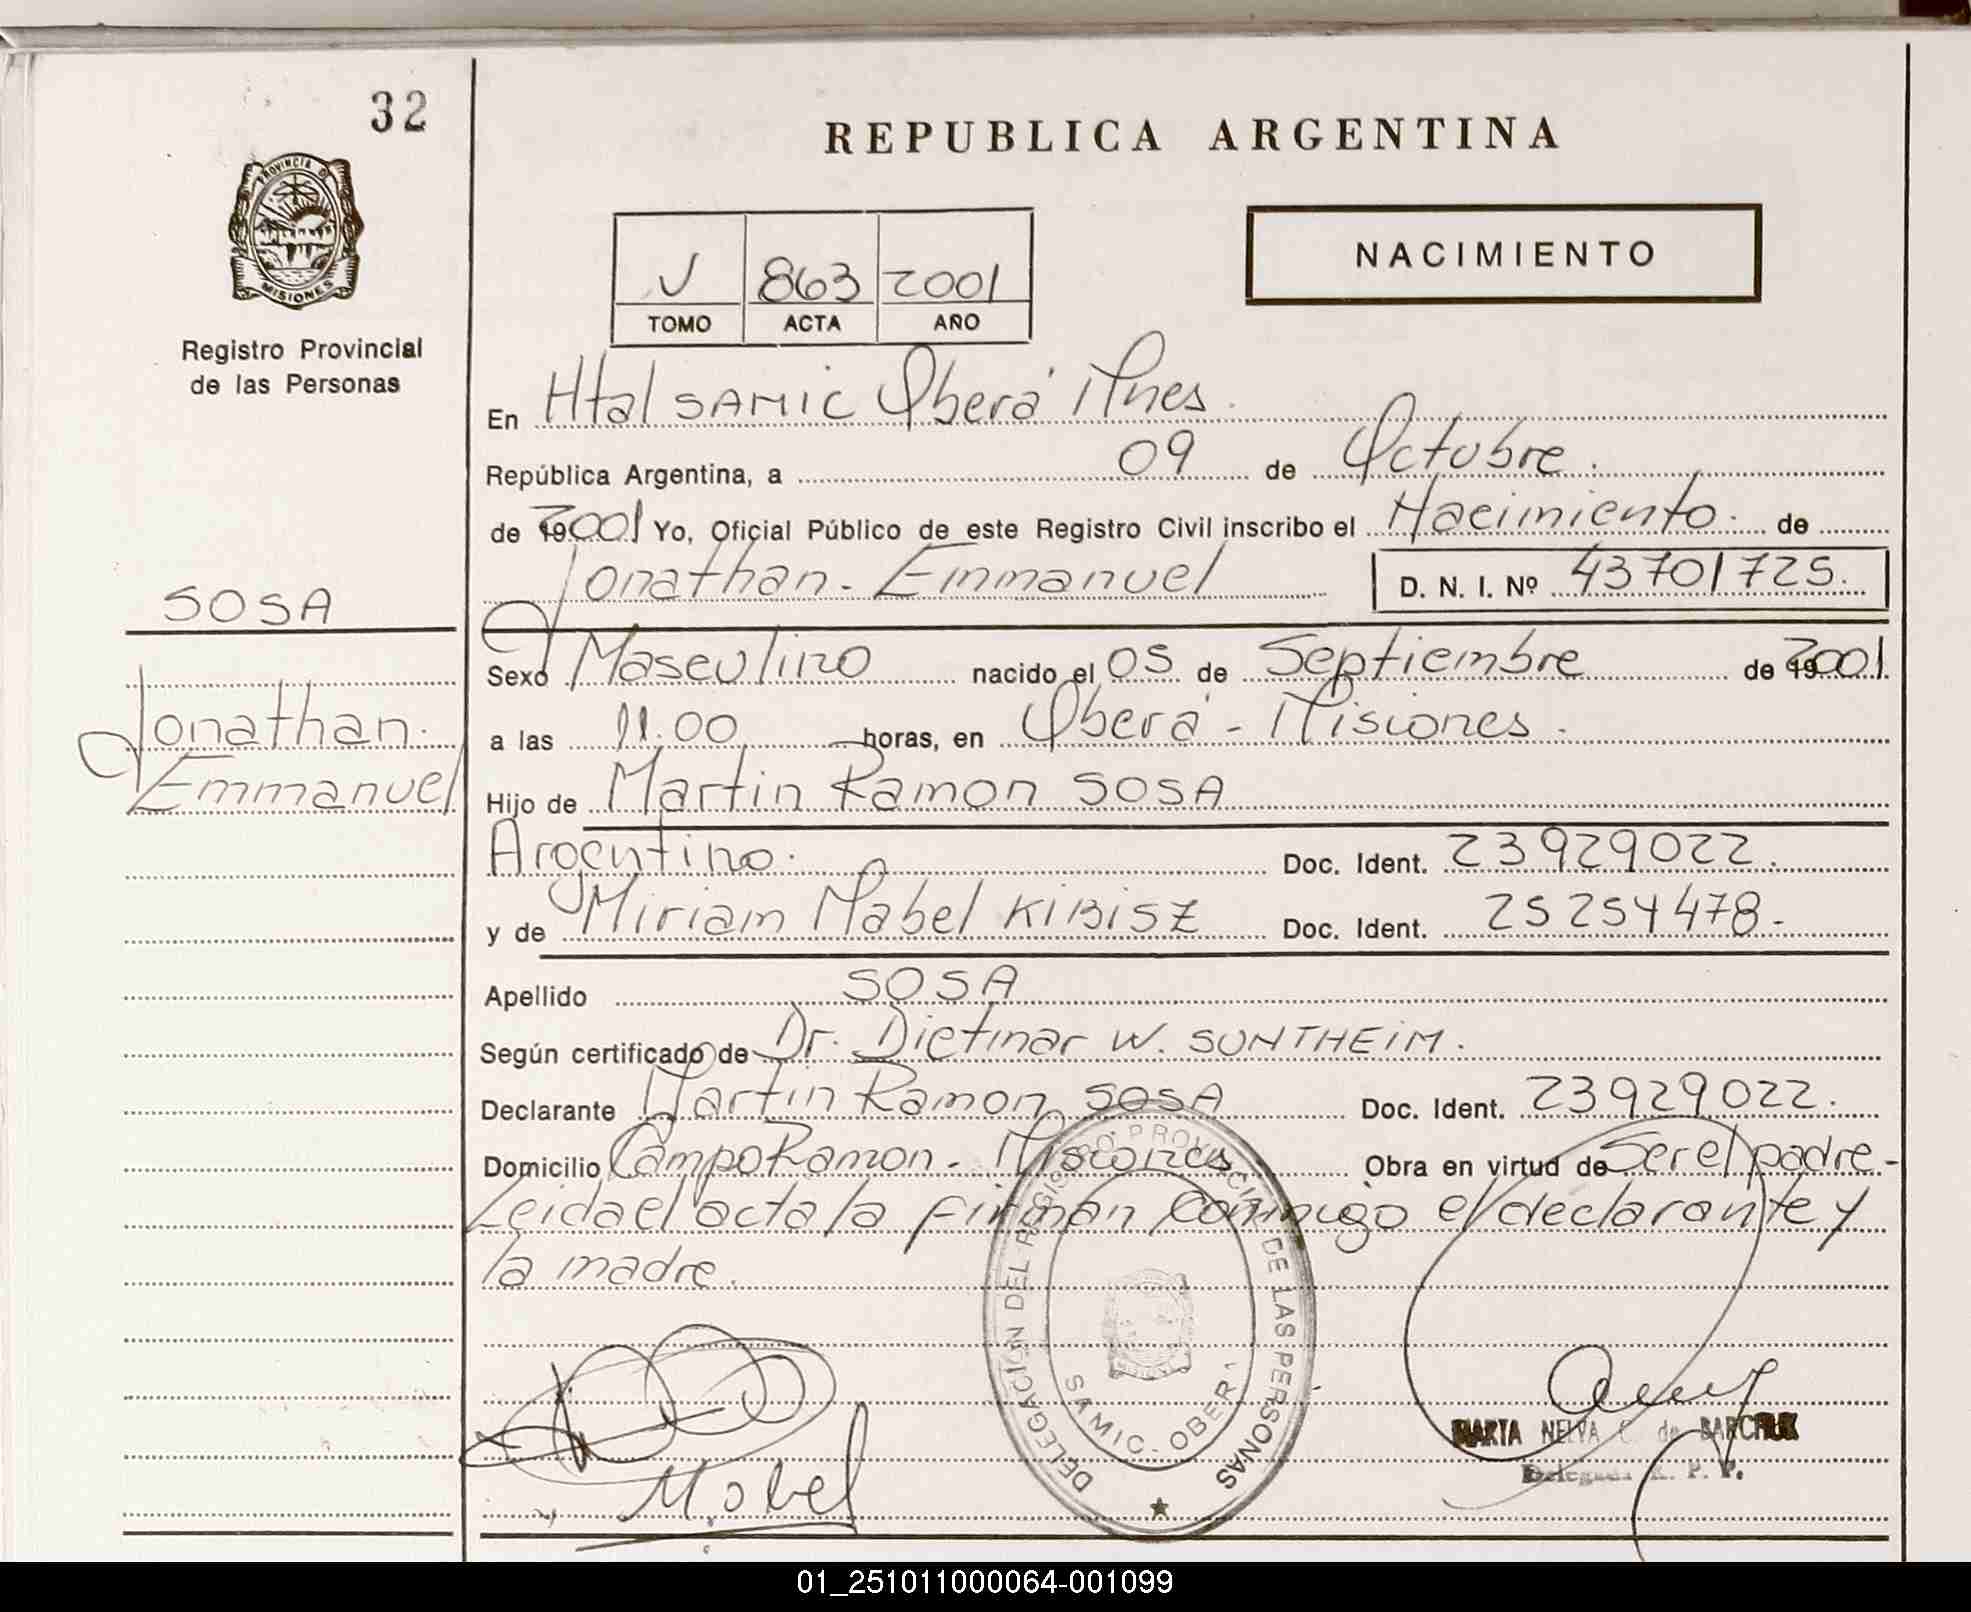 32
PROVINCIA DE
MISIONES
Registro Provincial
de las Personas
SOSA
Jonathan.
Emmanuel
REPUBLICA ARGENTINA
V 863 2001
TOMO ACTA AÑO
NACIMIENTO
En Htal SAMIC Oberá Mnes.
República Argentina, a 09 de Octubre.
de 2001 Yo, Oficial Público de este Registro Civil inscribo el Nacimiento. de
Jonathan - Emmanuel D. N. I. Nº 43701725.
Sexo Masculino nacido el 05 de Septiembre de 2001.
a las 11.00 horas, en Oberá - Misiones.
Hijo de Martin Ramon SOSA
Argentino. Doc. Ident. 23929022.
y de Miriam Mabel KIBISZ Doc. Ident. 25254478-
Apellido SOSA
Según certificado de Dr. Dietmar W. SONTHEIM.
Declarante Martin Ramon SOSA Doc. Ident. 23929022.
Domicilio Campo Ramon - Misiones Obra en virtud de Ser el padre -
Leida el acta la firman conmigo el declarante y
la madre.
DELEGACIÓN DEL REGISTRO PROVINCIAL DE LAS PERSONAS
SAMIC - OBERA
Mabel
MARTA NELVA C. de BARCHUK
Delegada R. P. P.
01_251011000064-001099